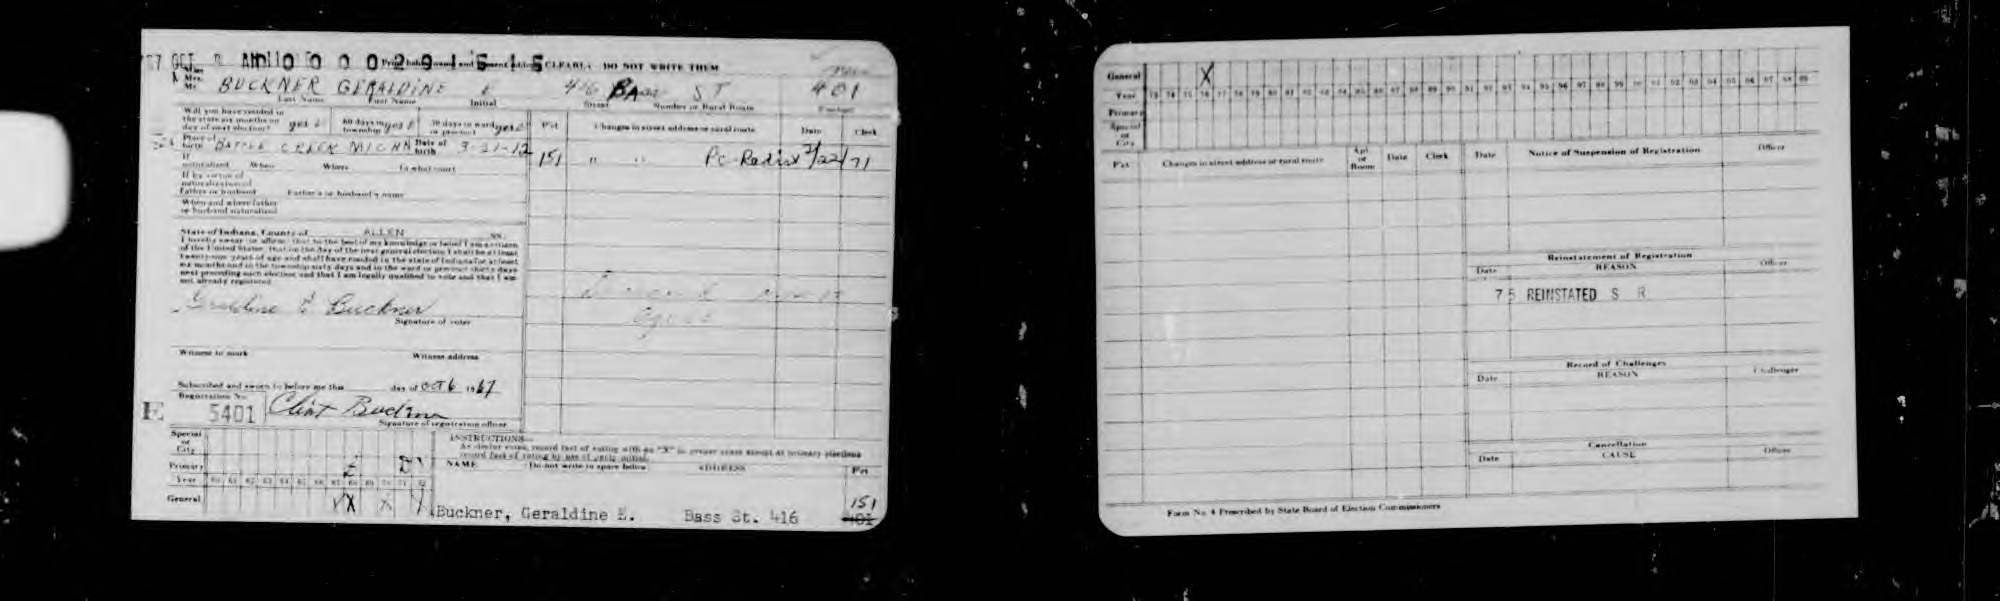 67 OCT AM 10 0 0 0 2 9 1 5 1 5 CLEARLY DO NOT WRITE THEM
Mrs. BUCKNER GERALDINE E 416 BASS ST 401
Last Name First Name Initial Street Number or Rural Route
Will you have resided in the state six months on day of next election? yes 60 days in township yes 30 days in ward or precinct yes Pct Changes in street address or rural route Date Clerk
Place of birth BATTLE CREEK MICHN Date of birth 3-21-12 151 " " Pc-Redist 2/22/71
If naturalized When Where In what court
If by virtue of naturalization of Father or husband Father's or husband's name
When and where father or husband naturalized
State of Indiana, County of ALLEN SS.
I hereby swear or affirm that to the best of my knowledge or belief I am a citizen
of the United States, that on the day of the next general election I shall be at least
twenty-one years of age and shall have resided in the state of Indiana for at least
six months and in the township sixty days and in the ward or precinct thirty days
next preceding such election and that I am legally qualified to vote and that I am
not already registered.
Geraldine E Buckner
Signature of voter
Witness to mark Witness address
Subscribed and sworn to before me this day of OCT 6 1967
Registration No.
E 5401
Signature of registration officer
Special or City
Primary
Year 60 61 62 63 64 65 66 67 68 69 70 71 72
General X X X
INSTRUCTIONS—
As elector votes, record fact of voting with an "X" in proper space except at primary elections
record fact of voting by use of party initial.
NAME Do not write in space below ADDRESS Pct
151
Buckner, Geraldine E. Bass St. 416 401
General X
Year 73 74 75 76 77 78 79 80 81 82 83 84 85 86 87 88 89 90 91 92 93 94 95 96 97 98 99
Primary
Special or City
Pct Changes in street address or rural route Apt or Room Date Clerk Date Notice of Suspension of Registration Officer
Reinstatement of Registration
Date REASON Officer
75 REINSTATED S R
Record of Challenges
Date REASON Challenger
Cancellation
Date CAUSE Officer
Form No. 4 Prescribed by State Board of Election Commissioners